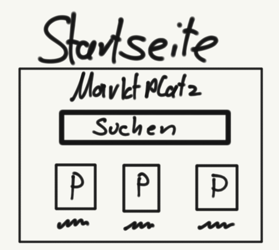 Startseite
Marktplatz
Suchen
P P P